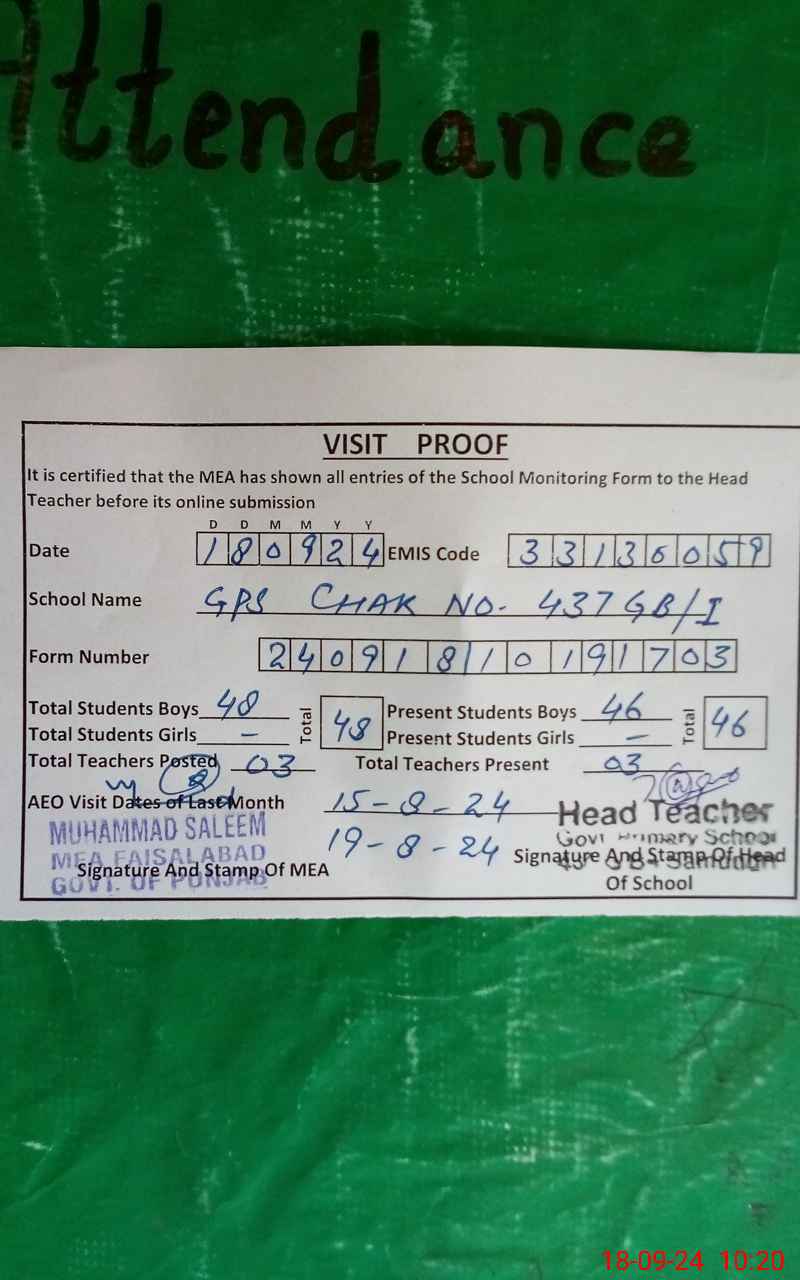 Attendance
VISIT PROOF
It is certified that the MEA has shown all entries of the School Monitoring Form to the Head
Teacher before its online submission
D D M M Y Y
Date 180924 EMIS Code 33130059
School Name GPS CHAK NO. 437 GB/I
Form Number 24091810191703
Total Students Boys 48 Total 48 Present Students Boys 46 Total 46
Total Students Girls - Present Students Girls -
Total Teachers Posted 03 Total Teachers Present 03
AEO Visit Dates of Last Month 15-8-24
19-8-24
MUHAMMAD SALEEM
MEA FAISALABAD
GOVT. OF PUNJAB
Signature And Stamp Of MEA
Head Teacher
Govt Primary School
Signature And Stamp Of Head
Of School
18-09-24 10:20